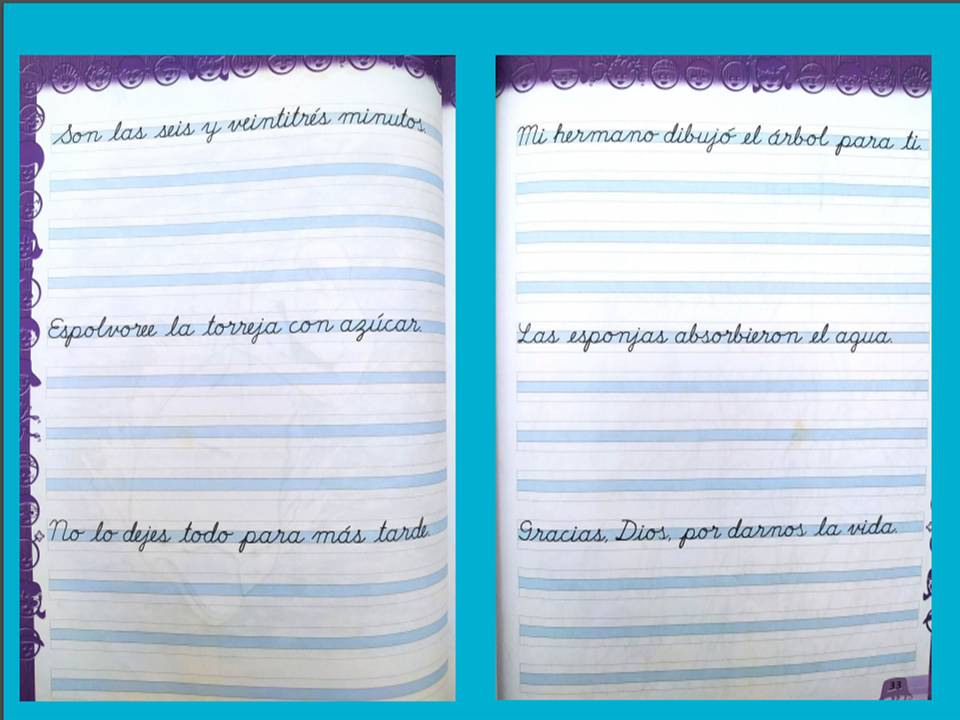 Son las seis y veintitrés minutos.
Espolvoree la torreja con azúcar.
No lo dejes todo para más tarde.
Mi hermano dibujó el árbol para ti.
Las esponjas absorbieron el agua.
Gracias, Dios, por darnos la vida.
33